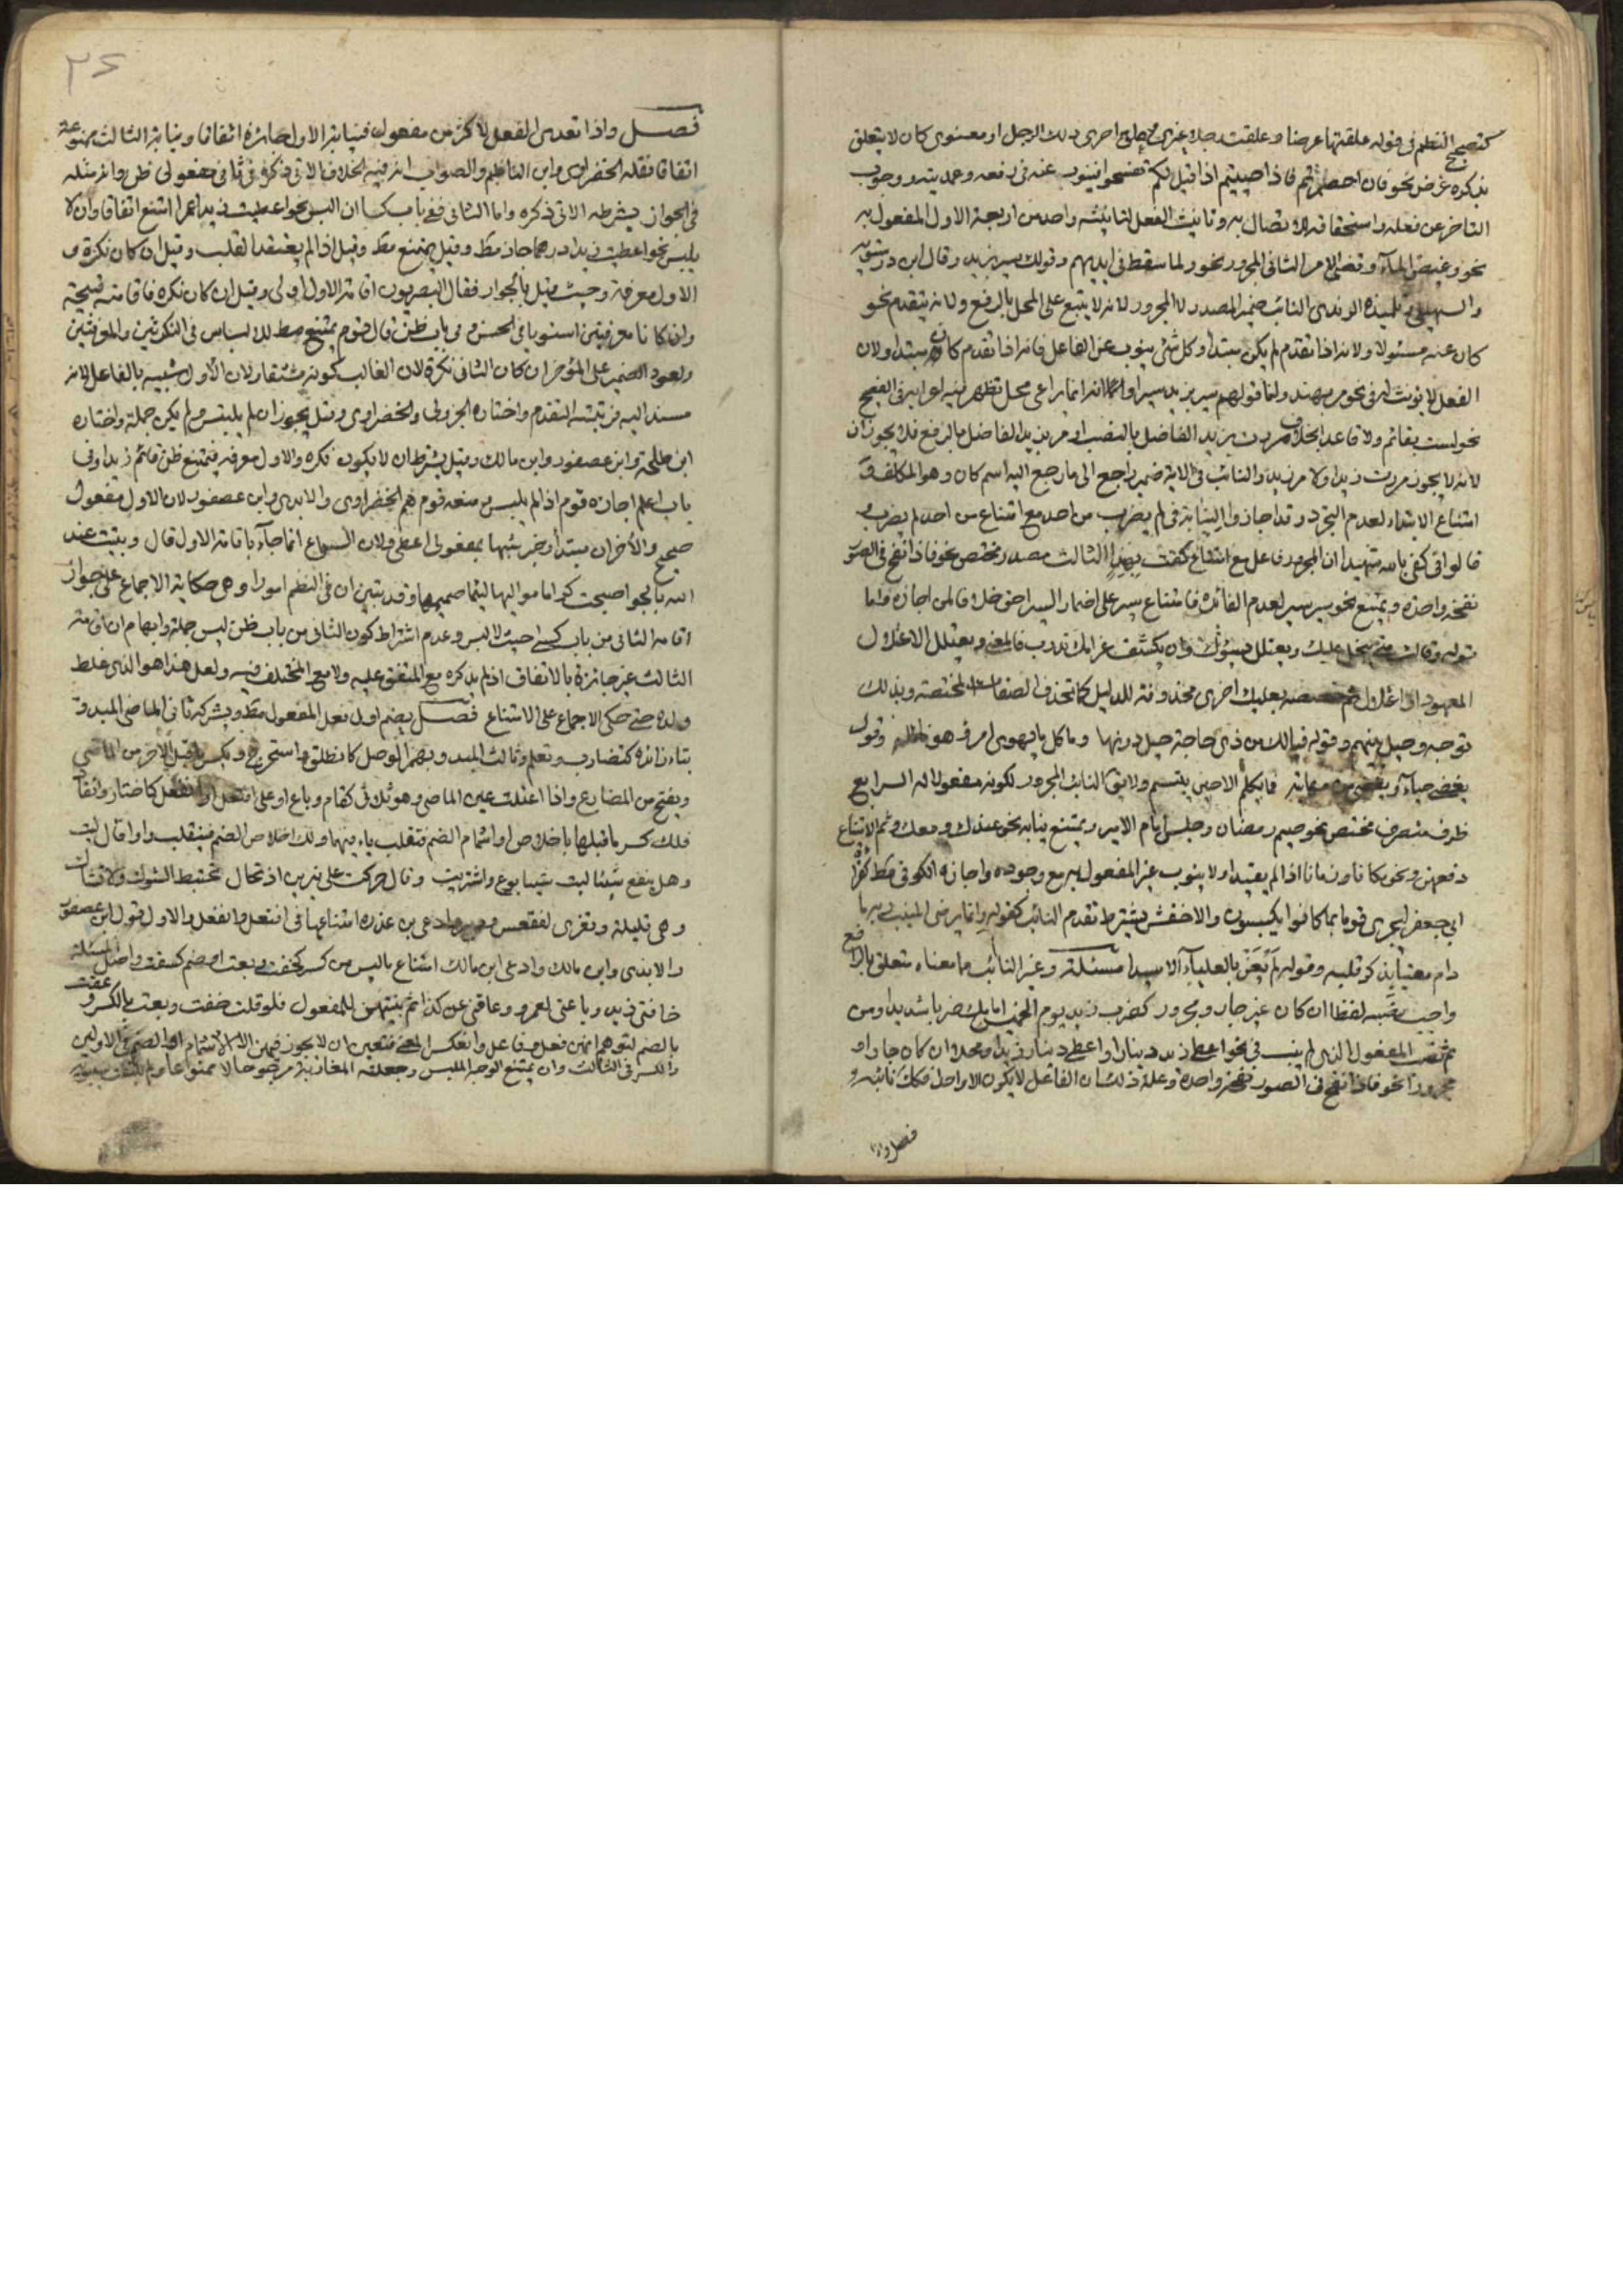 كتصحيح النظم في قوله علقتها عرضا وعلقت رجلا غيري وعلق اخرى ذلك الرجل او معنوي كان لا يتعلق
بذكره غرض نحو فان احصرتم فاذا حييتم اذا قيل لكم تفسحوا فينوب عنه في رفعه وعمديته ووجوب
التاخر عن فعله واستحقاقه للاتصال به وتانيث الفعل لتانيثه واحد من اربعة الاول المفعول به
نحو وغيض الماء وقضى الامر الثاني المجرور نحو ولما سقط في ايديهم وقولك سير بزيد وقال ابن درستويه
والسهيلي وتلميذه الرندي النائب ضمير المصدر لا المجرور لانه لا يتبع على المحل بالرفع ولانه يتقدم نحو
كان عنه مسئولا ولانه اذا تقدم لم يكن مبتدا وكل شئ ينوب عن الفاعل فانه اذا تقدم كان مبتدا ولان
الفعل لا يؤنث له في نحو مر بهند ولنا قولهم سير بزيد سيرا وانه انما يراعى محل يظهر في الفصيح
نحو لست بقائم ولا قاعدا بخلاف مررت بزيد الفاضل بالنصب او مر بزيد الفاضل بالرفع فلا يجوزان
لانه لا يجوز مررت زيدا ولا مر زيد والنائب في الاية ضمير راجع الى ما رجع اليه اسم كان وهو المكلف و
امتناع الابتداء لعدم التجرد وقد اجازوا النيابة في لم يضرب من احد مع امتناع من احد لم يضرب و
قالوا في كفى بالله شهيدا ان المجرور فاعل مع امتناع كفت بهند الثالث مصدر مختص نحو فاذا نفخ في الصور
نفخة واحدة ويمتنع نحو سير سير لعدم الفائدة فامتناع سير على اضمار السير احق خلافا لمن اجازه واما
قوله وقالت متى يبخل عليك ويعتلل يسؤك وان يكشف غرامك تدرب فالمعنى ويعتلل الاعتلال
المعهود او اعتلال ثم خصصه بعليك اخرى محذوفة للدليل كما تحذف الصفات المختصة وبذلك
توجه وحيل بينهم وقوله فيا لك من ذي حاجة حيل دونها وما كل ما يهوى امرؤ هو نائله وقوله
يغضي حياء ويغضى من مهابته فما يكلم الا حين يبتسم ولا يقال النائب المجرور لكونه مفعولا له الرابع
ظرف متصرف مختص نحو صيم رمضان وجلس امام الامير ويمتنع نيابة نحو عندك ومعك وثم لامتناع
رفعهن ونحو مكانا وزمانا اذا لم يقيدا ولا ينوب غير المفعول به مع وجوده واجازه الكوفي مط لقراءة
ابي جعفر ليجزى قوما بما كانوا يكسبون والاخفش بشرط تقدم النائب كقوله وانما يرضي المنيب ربه ما
دام معنيا بذكر قلبه وقوله لم يعن بالعلياء الا سيدا مسئلة وغير النائب مما معناه متعلق بالرافع
واجب نصبه لفظا ان كان غير جار ومجرور كضرب زيد يوم الخميس امامك ضربا شديدا ومن
ثم نصب المفعول الذي لم ينب في نحو اعطى زيد دينارا واعطي دينار زيدا ومحلا ان كان جارا و
مجرورا نحو فاذا نفخ في الصور نفخة واحدة وعلة ذلك ان الفاعل لا يكون الا واحدا فكذلك نائبه
فصل واذا
٣٤
فصل واذا تعدى الفعل لاكثر من مفعول فنيابة الاول جائزة اتفاقا ونيابة الثالث ممتنعة
اتفاقا نقله الخضراوي وابن الناظم والصواب انه فيه الخلاف الاتي ذكره في ثاني مفعولي ظن وانه مثله
في الجواز بشرطه الاتي ذكره واما الثاني ففي باب كسا ان البس نحو اعطيت زيدا عمرا امتنع اتفاقا وان لا
يلبس نحو اعطيت زيدا درهما جاز مط وقيل يمتنع مط وقيل اذا لم يعتقد القلب وقيل ان كان نكرة و
الاول معرفة وحيث قيل بالجواز فقال البصريون اقامة الاول اولى وقيل ان كان نكرة فاقامته قبيحة
وان كانا معرفتين استويا في الحسن وفي باب ظن قال قوم يمتنع مط للالباس في النكرتين والمعرفتين
ولعود الضمير على المؤخر ان كان الثاني نكرة لان الغالب كونه مشتقا ولان الاول شبيه بالفاعل لانه
مسند اليه فرتبته التقدم واختاره الجزولي والخضراوي وقيل يجوز ان لم يلتبس ولم يكن جملة واختاره
ابن طلحة وابن عصفور وابن مالك وقيل بشرط ان لا يكون نكرة والاول معرفة فيمتنع ظن قائم زيدا وفي
باب اعلم اجازه قوم اذا لم يلبس ومنعه قوم هم الخضراوي والابدي وابن عصفور لان الاول مفعول
صحيح والاخران مبتدا وخبر شبها بمفعولي اعطى ولان السماع انما جاء باقامة الاول قال ونبئت عبد
الله بالجو اصبحت كراما مواليها لئيما صميمها وقد تبين ان في النظم امورا وهي حكاية الاجماع على جواز
اقامة الثاني من باب كسى حيث لا لبس وعدم اشتراط كون الثاني من باب ظن ليس جملة وايهام ان اقامة
الثالث غير جائزة بالاتفاق اذ لم يذكره مع المتفق عليه ولا مع المختلف فيه ولعل هذا هو الذي غلط
ولده حتى حكى الاجماع على الامتناع فصل يضم اول فعل المفعول مط ويشركه ثاني الماضي المبدو
بتاء زائدة كتضارب وتعلم وثالث المبدو بهمز الوصل كانطلق واستخرج ويكسر ما قبل الاخر من الماضي
ويفتح من المضارع واذا اعتلت عين الماضي وهو ثلاثي كقام وباع او على افتعل او انفعل كاختار وانقاد
فلك كسر ما قبلها باخلاص او اشمام الضم فتقلب ياء فيهما ولك اخلاص الضم فتنقلب واوا قال ليت
وهل ينفع شيئا ليت شبابا بوع واشتريت وقال حوكت على نيرين اذ تحاك تختبط الشوك ولا تشاك
وهي قليلة وتعزى لفقعس ودبير وادعى بن عذرة امتناعها في افتعل وانفعل والاول قول ابن عصفور
والابدي وابن مالك وادعى ابن مالك امتناع ما ليس من كسر كخفت وبعت او ضم كسقت واصل المسئلة
خافني زيد وباعني لعمرو وعاقني عن كذا ثم بنيتهن للمفعول فلو قلت خفت وبعت بالكسر وعقت
بالضم لتوهم انهن فعل وفاعل وانعكس المعنى فتعين ان لا يجوز فيهن الا الاشمام او الضم في الاولين
والكسر في الثالث وان يمتنع الوجه الملبس وجعلته المغاربة مرجوحا لا ممنوعا ولم يلتفت سيبويه